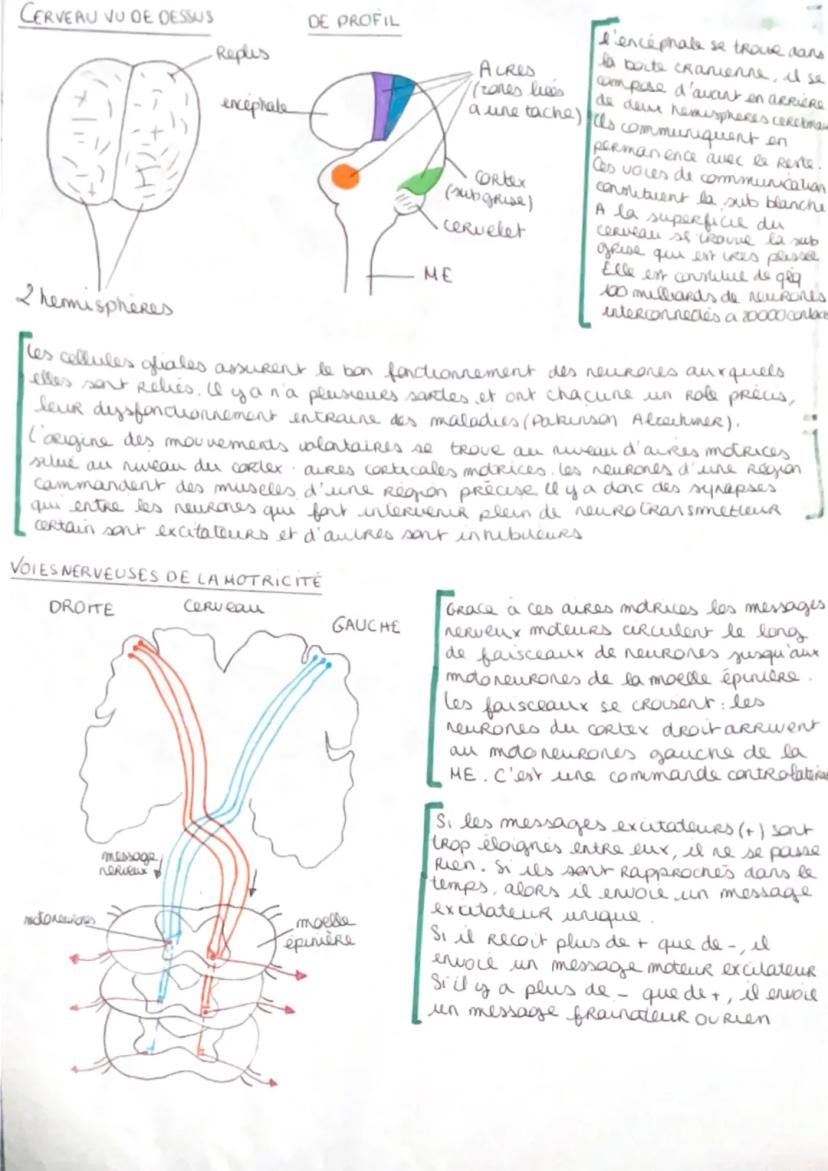 CERVEAU VU DE DESSUS
DE PROFIL
Replis
encéphale
2 hemisphères
Acres
(zones liées
a une tache)
cortex
(subgrise)
cervelet
ME
l'encéphale se trouve dans
la boite cranienne, il se
compose d'avant en arrière
de deux hemisphères cerebrau
Ils communiquent en
permanence avec le reste.
Ces voies de communication
constituent la sub blanche
A la superficie du
cerveau se trouve la sub
grise qui est tres plissée
Elle est constitue de qlq
100 milliards de neurones
interconnectés a 20000 contacts
Les cellules gliales assurent le bon fonctionnement des neurones auxquels
elles sont reliés. Il y a n'a plusieurs sortes et ont chacune un role précis,
leur dysfonctionnement entraine des maladies (Parkinson Alzeihmer).
L'origine des mouvements volontaires se trouve au niveau d'aires motrices
situé au niveau du cortex. aires corticales motrices. les neurones d'une région
commandent des muscles d'une région précise Il y a donc des synapses
qui entre les neurones qui font intervenir plein de neurotransmetteur
certain sont excitateurs et d'autres sont inhibiteurs
VOIES NERVEUSES DE LA MOTRICITÉ
DROITE
cerveau
GAUCHE
message
nerveux
motoneurones
moelle
épinière
Grace à ces aires motrices les messages
nerveux moteurs circulent le long
de faisceaux de neurones jusqu'aux
motoneurones de la moelle épinière.
Les faisceaux se croisent : les
neurones du cortex droit arrivent
au motoneurones gauche de la
ME. C'est une commande controlatérale
Si les messages excitateurs (+) sont
trop éloignés entre eux, il ne se passe
rien. Si ils sont rapprochés dans le
temps, alors il envoie un message
excitateur unique.
Si il reçoit plus de + que de -, il
envoie un message moteur excitateur
Si il y a plus de - que de +, il envoie
un message frainateur ou rien